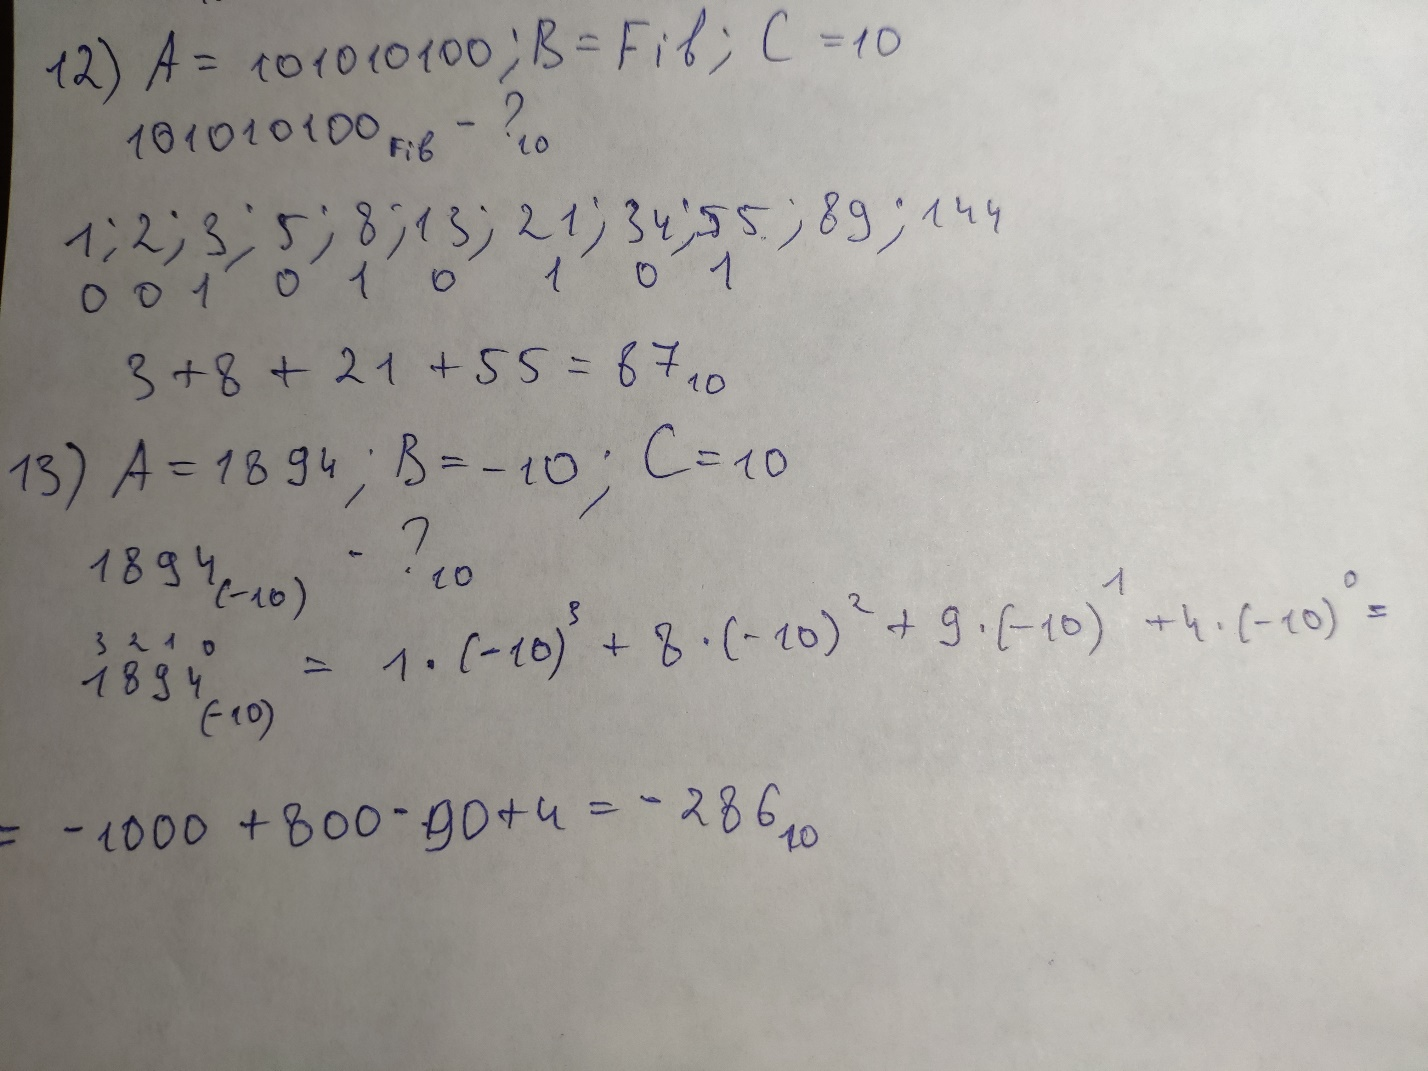 12) A = 101010100; B = Fib; C = 10
101010100Fib - ?10
1; 2; 3; 5; 8; 13; 21; 34; 55; 89; 144
0 0 1 0 1 0 1 0 1
3 + 8 + 21 + 55 = 87 10
13) A = 1894; B = -10; C = 10
1894(-10) - ?10
3 2 1 0
1894(-10) = 1 · (-10)³ + 8 · (-10)² + 9 · (-10)¹ + 4 · (-10)⁰ =
= -1000 + 800 - 90 + 4 = - 286 10